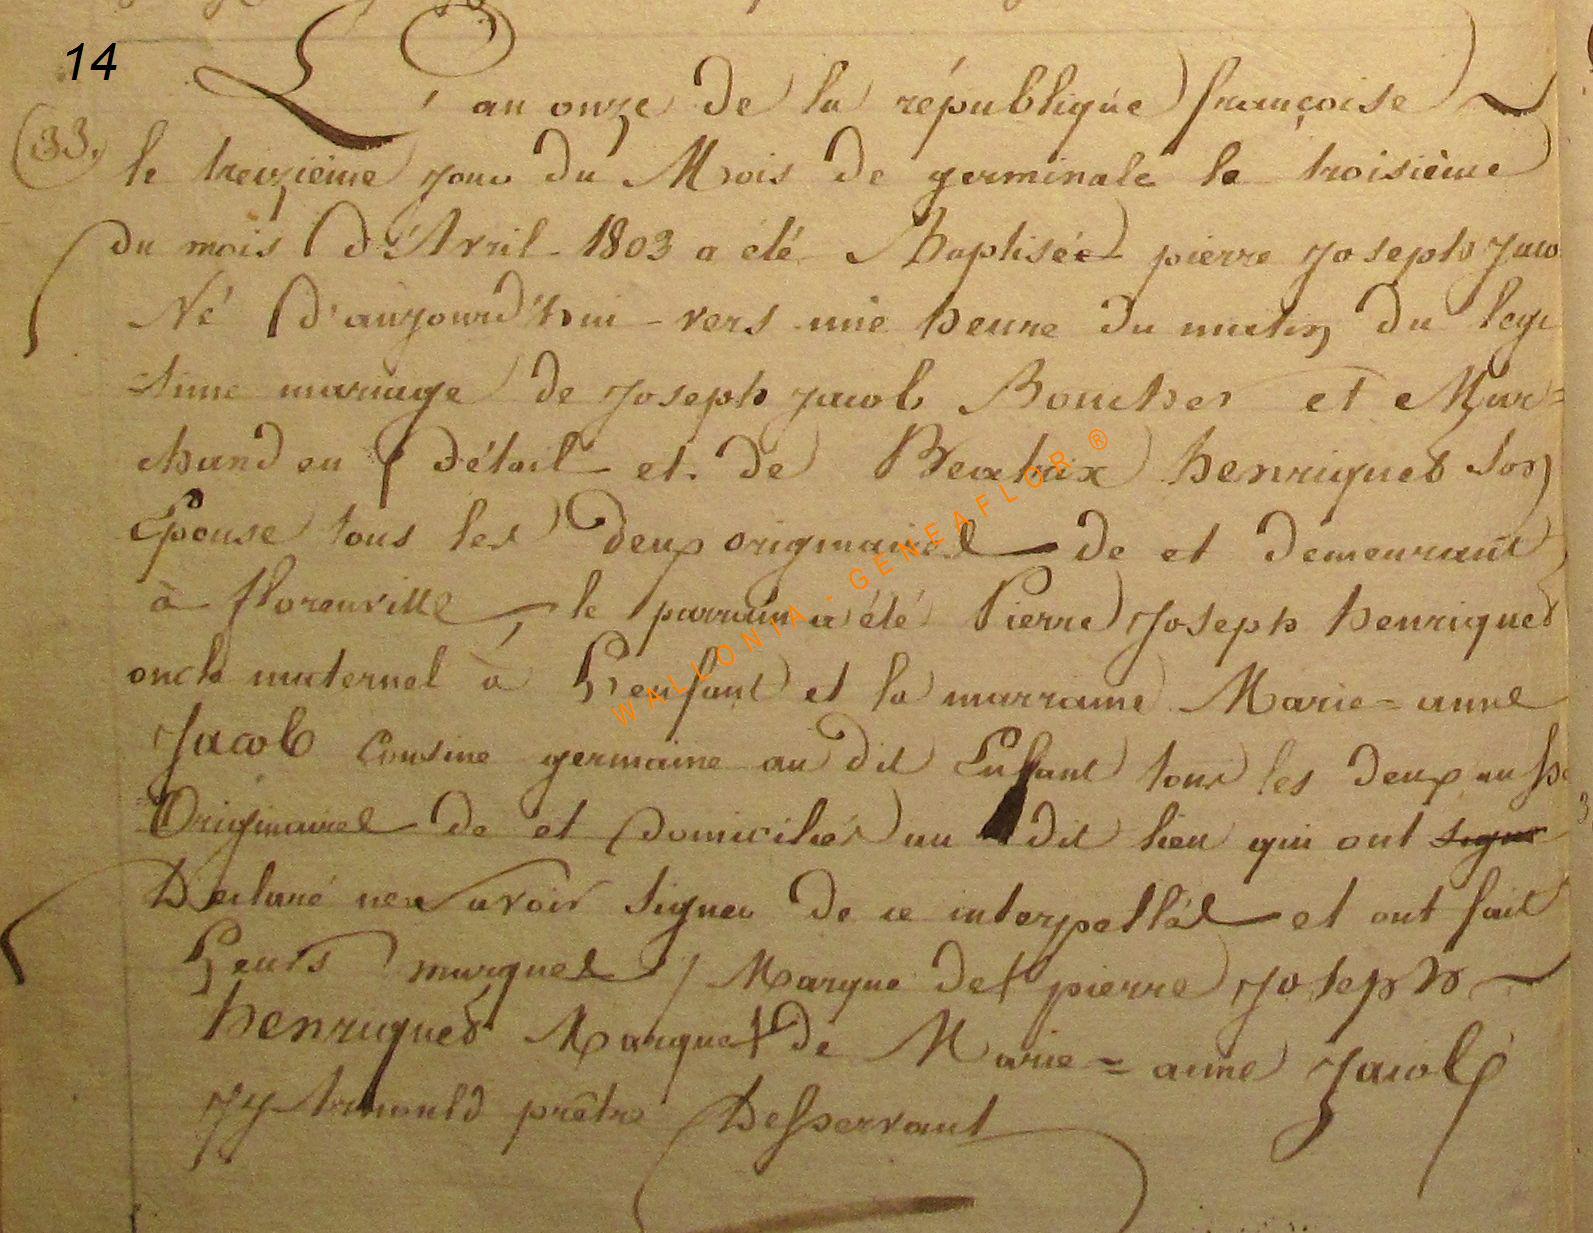 14
L'an onze de la république françoise
33.
le treizième jour du Mois de germinale le troisième
du mois d'Avril 1803 a été Baptisée pierre Joseph Jaco
Né d'aujourd'hui vers une heure du matin du legi
time mariage de Joseph Jacob Boucher et Mar=
chand en détail et de Beatrix henriques son
Epouse tous les deux originaires de et demeurant
à florenville, le parrain a été Pierre Joseph henriques
oncle maternel à L'enfant et la marraine Marie=anne
Jacob Cousine germaine au dit Enfant tous les deux aussi
Originaires de et domiciliés au dit lieu qui ont signé
Declaré ne savoir signer de ce interpellés et ont fait
Leurs marques / Marque de + pierre Joseph
henriques Marque + de Marie=anne Jacob
prêtre Desservant
WALLONIA - GENEAFLOR ®